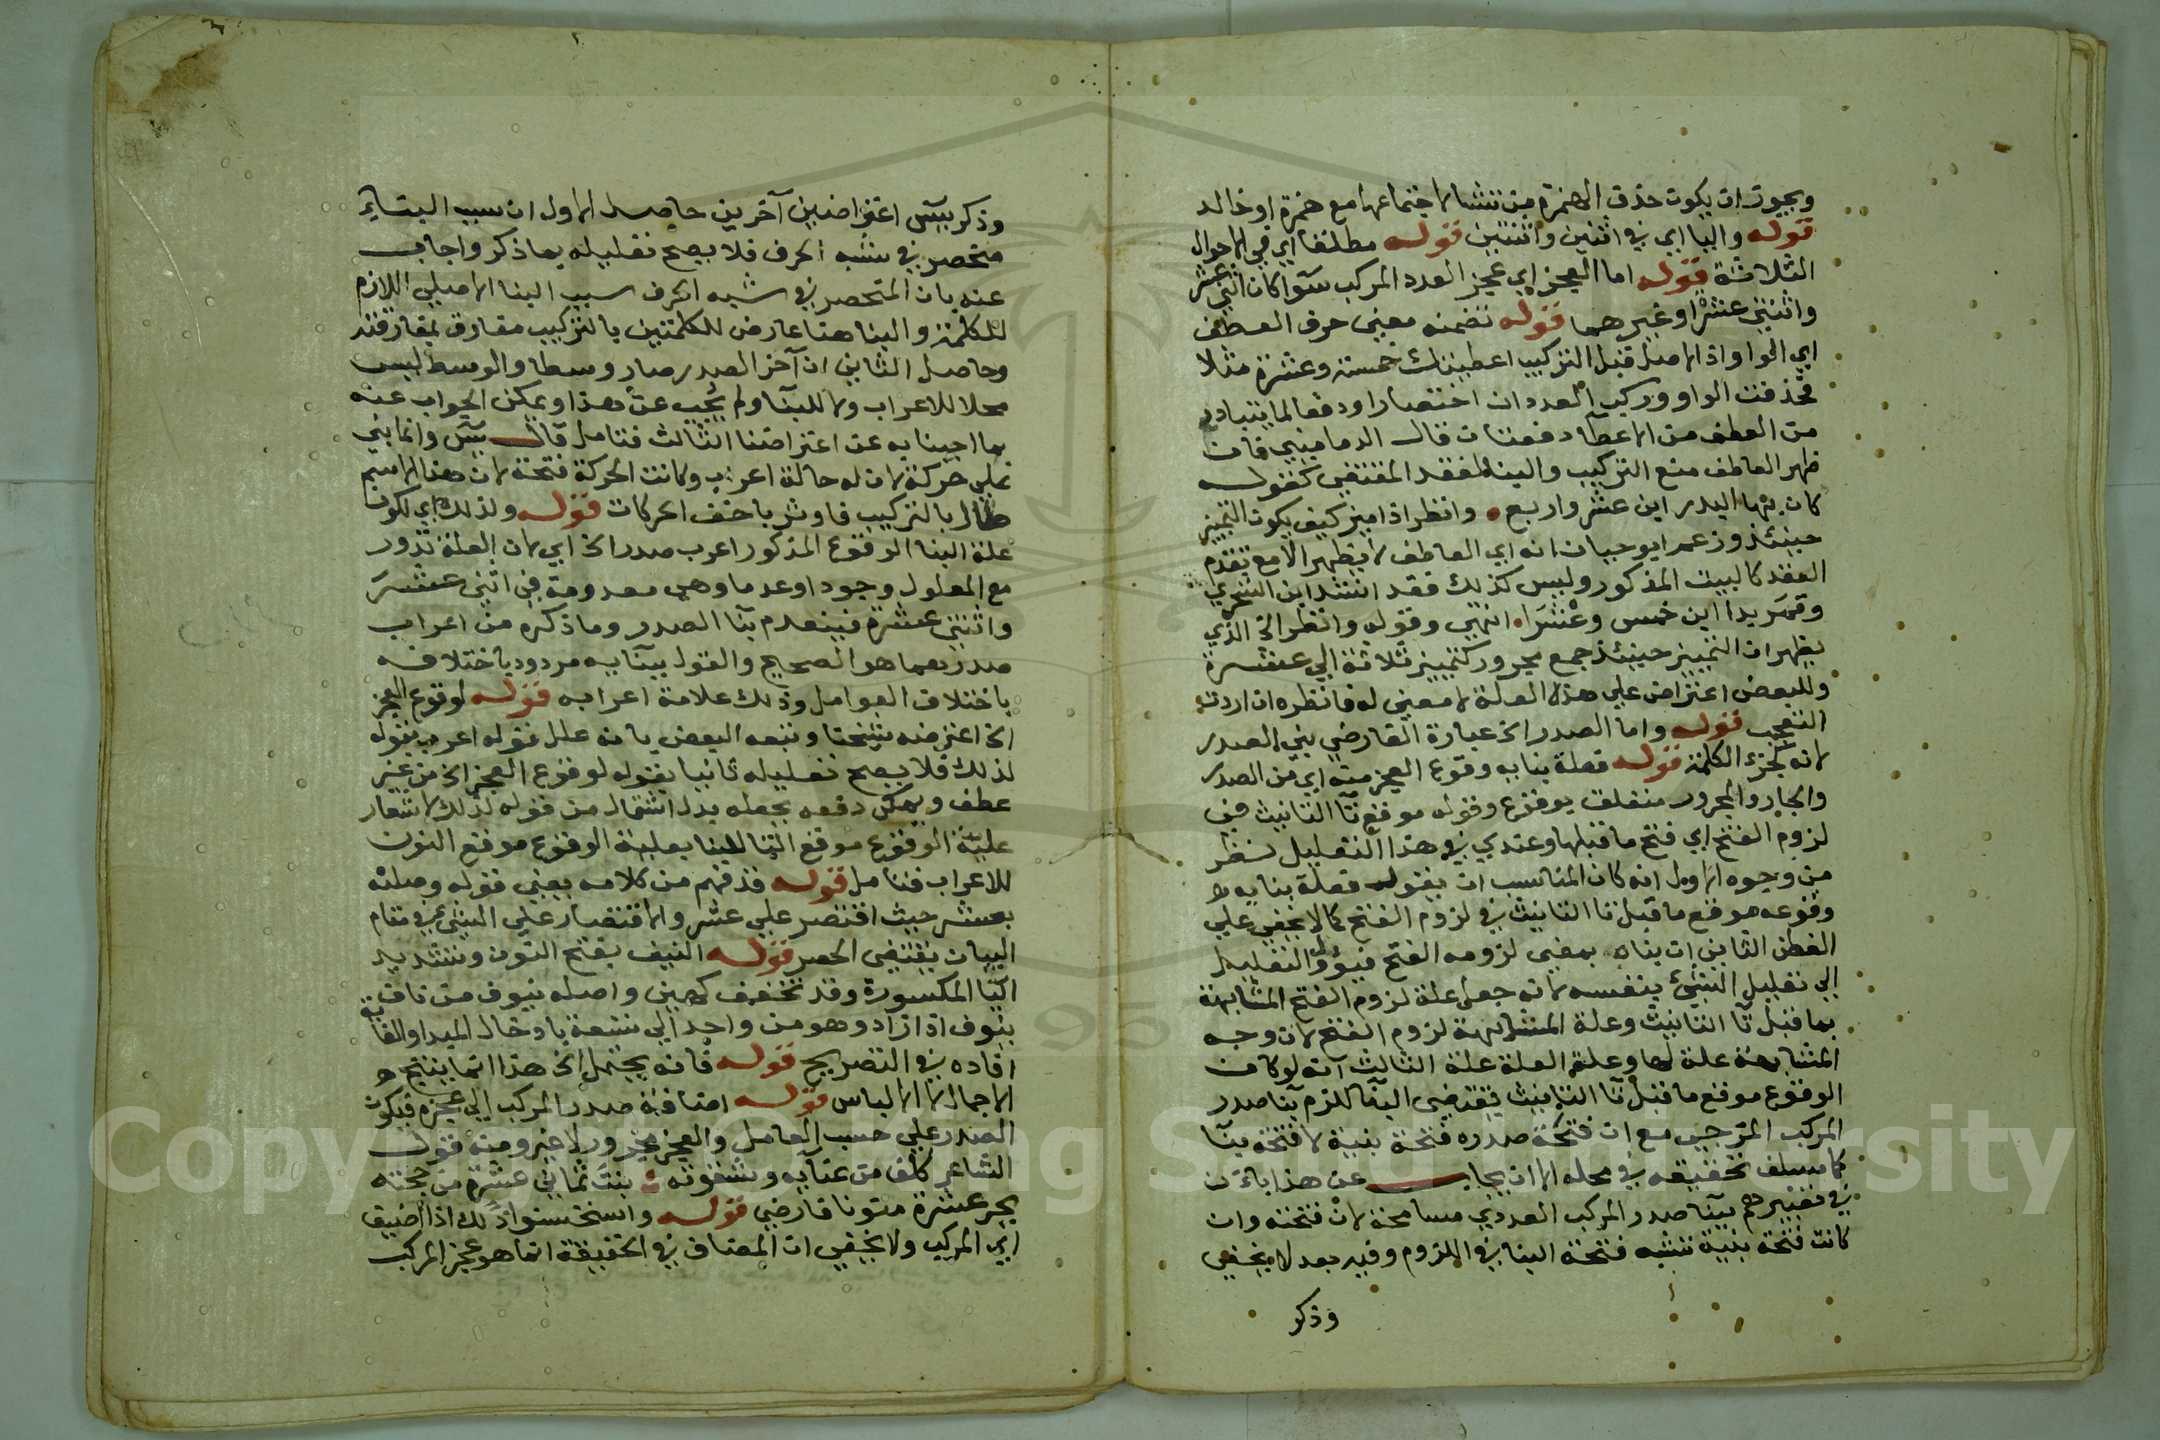 ويجوز ان يكون حذف الهمزة من تنشا لاجتماعها مع همزة او خالد
قوله واليا اي في اثنين واثنتين قوله مطلقا اي في الاحوال
الثلاثة قوله اما العجز اي عجز العدد المركب سوا كان اثني عشر
واثنتي عشر او غيرهما قوله تضمنه معنى حرف العطف
اي الواو اذ الاصل قبل التركيب اعطيتك خمسة وعشرة مثلا
فحذفت الواو وركب العددان اختصارا ودفعا لما يتبادر
من العطف من ان الاعطا دفعتان قال الدماميني فان
ظهر العاطف منع التركيب والبنا لفقد المقتضي كقوله
كان بها البدر ابن عشر واربع وانظر اذا ميز كيف يكون التمييز
حينئذ وزعم ابو حيان انه اي العاطف لا يظهر الا مع تقدم
العقد كالبيت المذكور وليس كذلك فقد انشد ابن الشجري
وقمر بدا ابن خمس وعشرا انتهى وقوله وانظر الخ الذي
يظهر ان التمييز حينئذ جمع مجرور كتمييز ثلاثة الى عشرة
وللبعض اعتراض على هذه العلة لا معنى له فانظره ان اردت
التعجب قوله واما الصدر الخ عبارة الفارضي بني الصدر
لانه كجزء الكلمة قوله فعلة بنايه وقوع العجز منه اي من الصدر
والجار والمجرور متعلق بوقوع وقوله موقع تا التانيث في
لزوم الفتح اي فتح ما قبلها وعندي في هذا التعليل نظر
من وجوه الاول انه كان المناسب ان يقول فعلة بنايه
وقوعه موقع ما قبل تا التانيث في لزوم الفتح كما لا يخفى على
الفطن الثاني ان بناه بمعنى لزومه الفتح فيؤول التعليل
الى تعليل الشيء بنفسه لانه جعل علة لزوم الفتح المشابهة
بما قبل تا التانيث وعلة المشابهة لزوم الفتح لانه وجه
المشابهة علة لها وعلة العلة علة الثالث انه لو كان
الوقوع موقع ما قبل تا التانيث يقتضي البنا للزم بنا صدر
المركب المزجي مع ان فتحة صدره فتحة بنية لا فتحة بنا
كما سلف تحقيقه في محله الا ان يجاب عن هذا بان
في تعبيرهم ببنا صدر المركب العددي مسامحة لان فتحته وان
كانت فتحة بنية تشبه فتحة البنا في اللزوم وفيه بعد لا يخفى
وذكر
وذكر يس اعتراضين آخرين حاصل الاول ان سبب البناء
منحصر في شبه الحرف فلا يصح تعليله بما ذكر واجاب
عنه بان المنحصر في شبه الحرف سبب البنا الاصلي اللازم
للكلمة والبنا هنا عارض للكلمتين بالتركيب مفارق بمفارقته
وحاصل الثاني ان آخر الصدر صار وسطا والوسط ليس
محلا للاعراب ولا للبنا ولم يجب عن هذا ويمكن الجواب عنه
بما اجبنا به عن اعتراضنا الثالث فتامل قال يس وانما بني
على حركة لان له حالة اعراب وكانت الحركة فتحة لان هذا الاسم
طال بالتركيب فاوثر باخف الحركات قوله ولذلك اي لكون
علة البنا الوقوع المذكور اعرب صدر الخ اي لان العلة تدور
مع المعلول وجودا وعدما وهي معدومة في اثني عشر
واثنتي عشرة فينعدم بنا الصدر وما ذكره من اعراب
صدريهما هو الصحيح والقول ببنايه مردود باختلافه
باختلاف العوامل وذلك علامة اعرابه قوله لوقوع العجز
الخ اعترضه شيخنا وتبعه البعض بانه علل قوله اعرب بقوله
لذلك فلا يصح تعليله ثانيا بقوله لوقوع العجز الخ من غير
عطف ويمكن دفعه بجعله بدل اشتمال من قوله لذلك لاشعار
علية الوقوع موقع التا للبنا بعلية الوقوع موقع النون
للاعراب فتامل قوله قد فهم من كلامه يعني قوله وصلنه
بعشر حيث اقتصر على عشر والاقتصار على الشيء في مقام
البيان يقتضي الحصر قوله النيف بفتح النون وتشديد
اليا المكسورة وقد تخفف كهين واصله نيوف من ناف
ينوف اذا زاد وهو من واحد الى تسعة بادخال المبدا والغاية
افاده في التصريح قوله فانه يحتمل الخ هذا انما ينتج
الاجمال لا الالباس قوله اضافة صدر المركب الى عجزه فيكون
الصدر على حسب العامل والعجز مجرور لا غير ومنه قول
الشاعر كلف من عنائه وشقوته بنت ثماني عشرة من حجته
بجر عشرة منونا فارضي قوله واستحسنوا ذلك اذا اضيف
اي المركب ولا يخفى ان المضاف في الحقيقة انما هو عجز المركب
Copyright © King Saud University